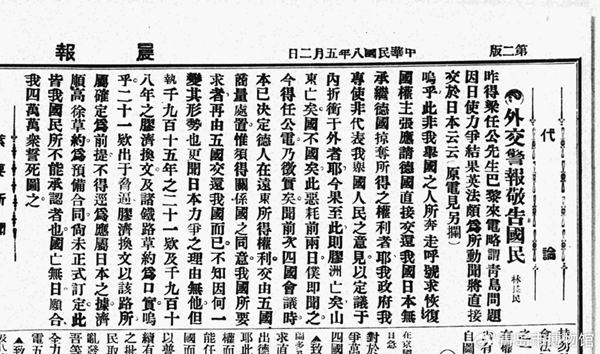 第二版
中華民國八年五月二日
晨報
代論
外交警報敬告國民 林長民
昨得梁任公先生巴黎來電略謂青島問題
因日使力爭結果英法頗爲所動聞將直接
交於日本云云（原電見另欄）
嗚乎此非我舉國之人所奔走呼號求恢復
國權主張應請德國直接交還我國日本無
承繼德國掠奪所得之權利者耶我政府我
專使非代表我舉國人民之意見以定議于
內折衝于外者耶今果至此則膠洲亡矣山
東亡矣國不國矣此惡耗前兩日僕卽聞之
今得任公電乃徵實矣聞前次四國會議時
本已決定德人在遠東所得權利交由五國
商量處置惟須得關係國之同意我國所要
求者再由五國交還我國而已不知因何一
變其形勢也更聞日本力爭之理由無他但
執千九百十五年之二十一欵及千九百十
八年之膠濟換文及諸鐵路草約爲口實嗚
乎二十一欵出于脅逼膠濟換文以該路所
屬確定爲前提不得逕爲應屬日本之據濟
順高徐草約爲預備合同尙未正式訂定此
皆我國民所不能承認者也國亡無日願合
我四萬萬衆誓死圖之